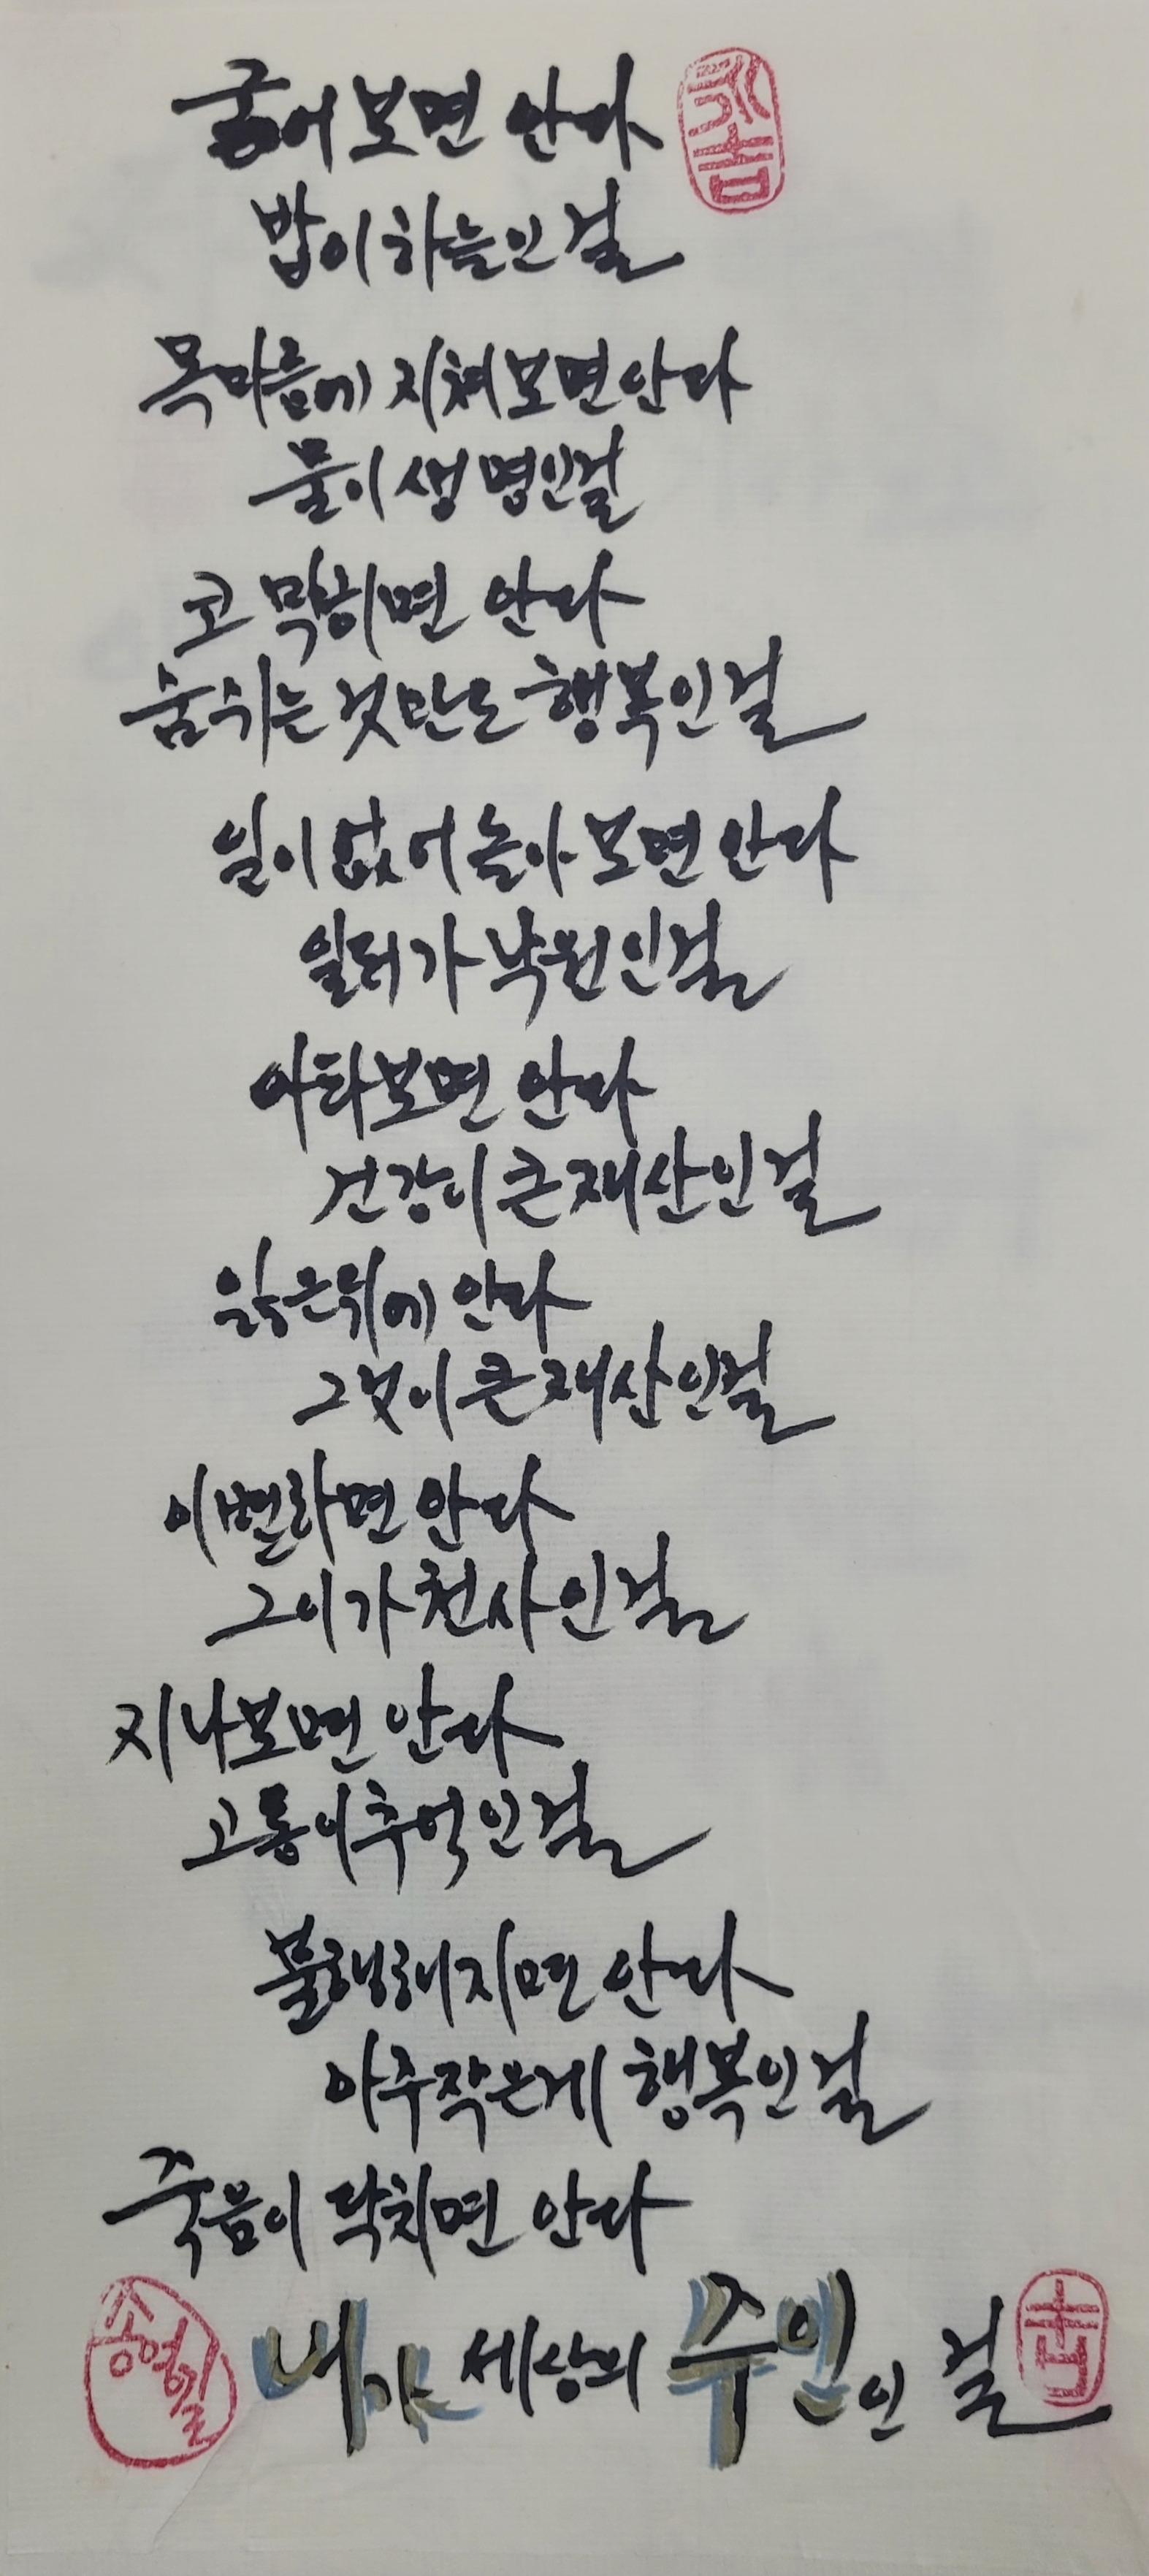 굶어 보면 안다
밥이 하늘인걸
목마름에 지쳐보면 안다
물이 생명인걸
코 막히면 안다
숨쉬는 것만도 행복인걸
일이 없어 놀아 보면 안다
일터가 낙원인걸
아파보면 안다
건강이 큰 재산인걸
잃은 뒤에 안다
그것이 큰 재산인걸
이별하면 안다
그이가 천사인걸
지나보면 안다
고통이 추억인걸
불행해지면 안다
아주 작은게 행복인걸
죽음이 닥치면 안다
내가 세상의 주인인 걸
송영길